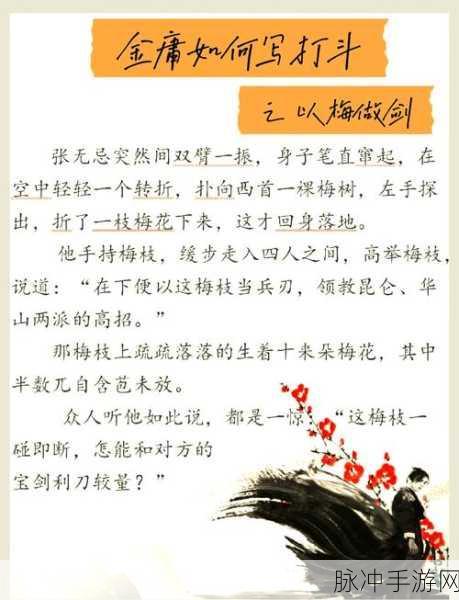 金庸如何写打斗
之以梅做剑
张无忌突然间双臂一振，身子笔直窜起，在
空中轻轻一个转折，扑向西首一棵梅树，左手探
出，折了一枝梅花下来，这才回身落地。
他手持梅枝，缓步走入四人之间，高举梅枝，
说道：“在下便以这梅枝当兵刃，领教昆仑、华
山两派的高招。”
那梅枝上疏疏落落的生着十来朵梅花，其中
半数兀自含苞未放。
众人听他如此说，都是一惊：“这梅枝一
碰即断，怎能和对方的
宝剑利刀较量？”
脉冲手游网